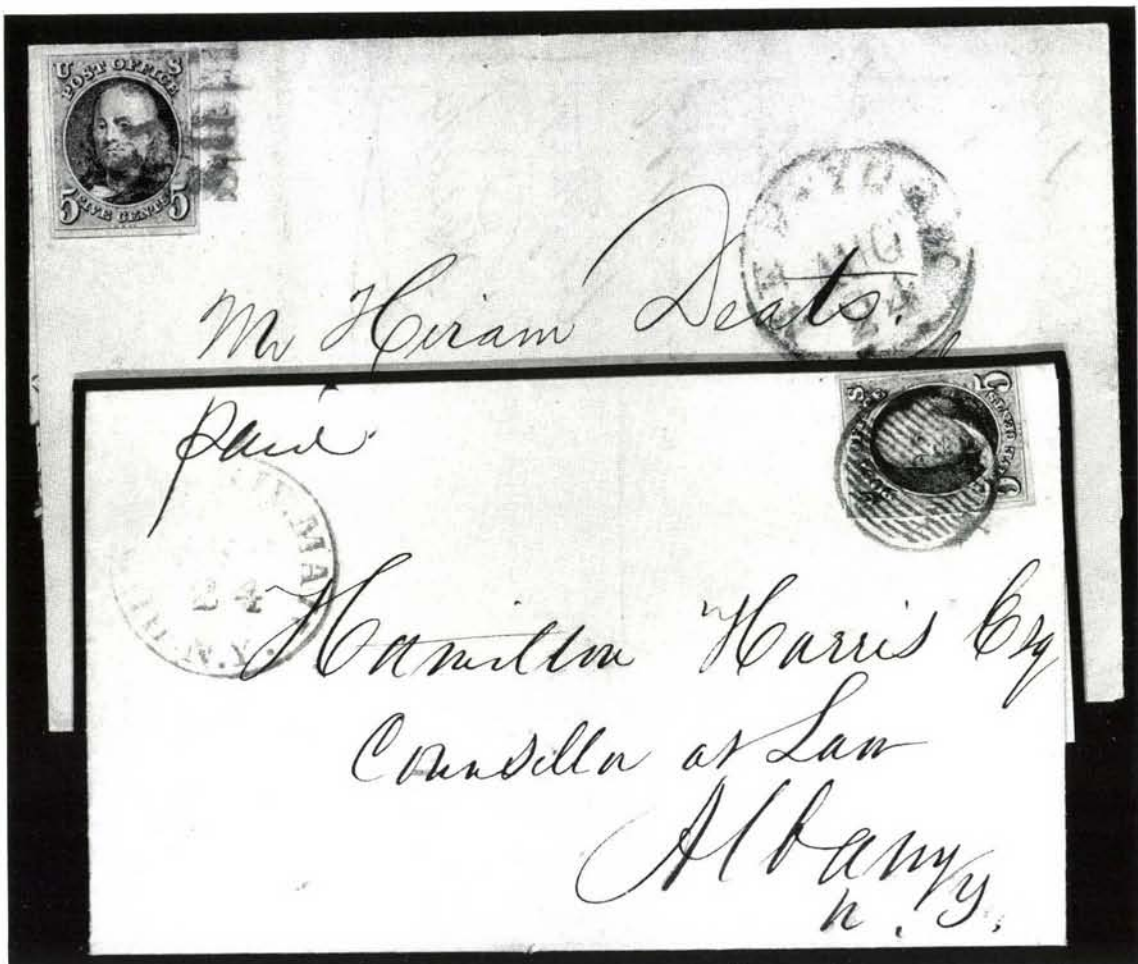 U S
POST OFFICE
5 FIVE CENTS 5
AUG
24
Mr Hiram Deats.
paid
24
U S
5
Hamilton Harris Esq
Counsillor at Law
Albany
N. Y.